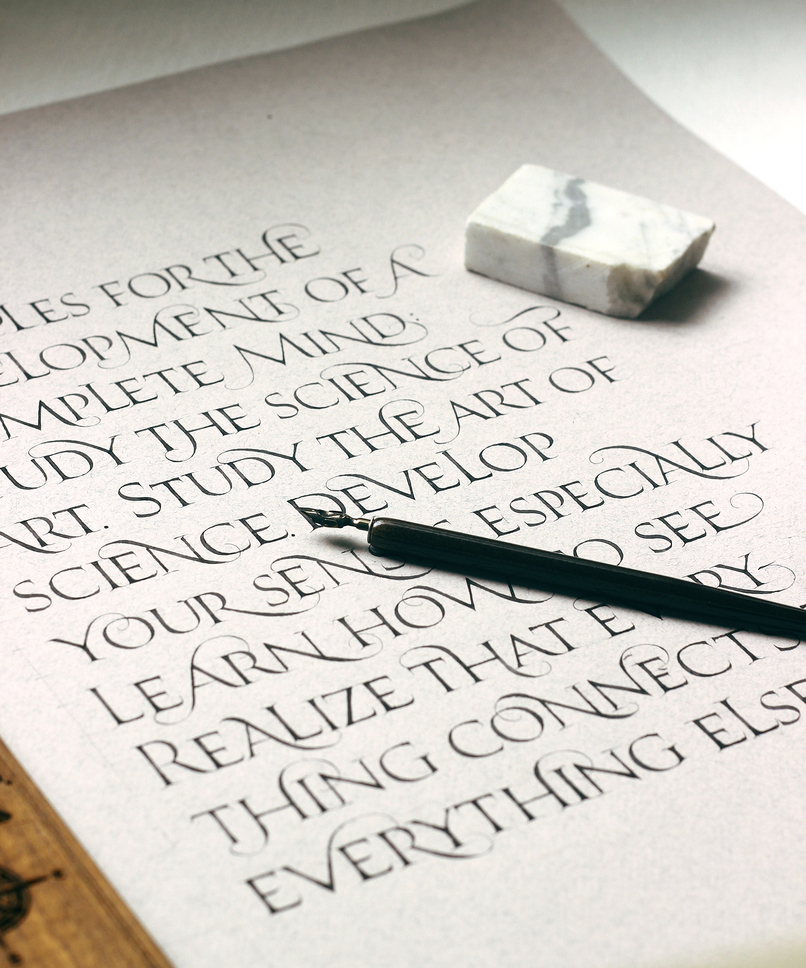 PLES FOR THE
ELOPMENT OF A
MPLETE MIND:
UDY THE SCIENCE OF
ART. STUDY THE ART OF
SCIENCE. DEVELOP
YOUR SENSES ESPECIALLY
LEARN HOW TO SEE
REALIZE THAT EVERY
THING CONNECTS
EVERYTHING ELSE